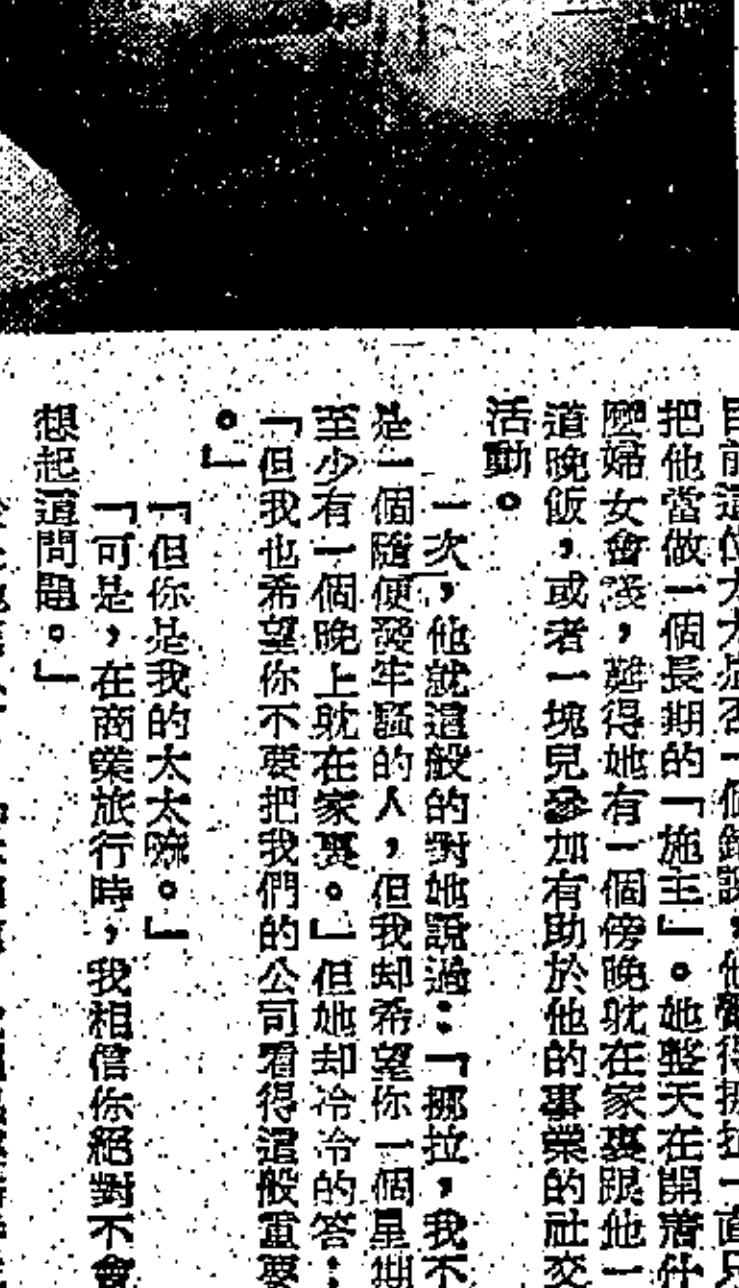 目前這位太太是否一個錯誤,他覺得挪拉一直只
把他當做一個長期的「施主」。她整天在開著什
麼婦女會議,難得她有一個傍晚躭在家裏跟他一
道晚飯,或者一塊兒參加有助於他的事業的社交
活動。
一次,他就這般的對她說過:「挪拉,我不
是一個隨便發牢騷的人,但我却希望你一個星期
至少有一個晚上躭在家裏。」但她却冷冷的答:
「但我也希望你不要把我們的公司看得這般重要
。」
「但你是我的太太嘛。」
「可是,在商業旅行時,我相信你絕對不會
想起這問題。」